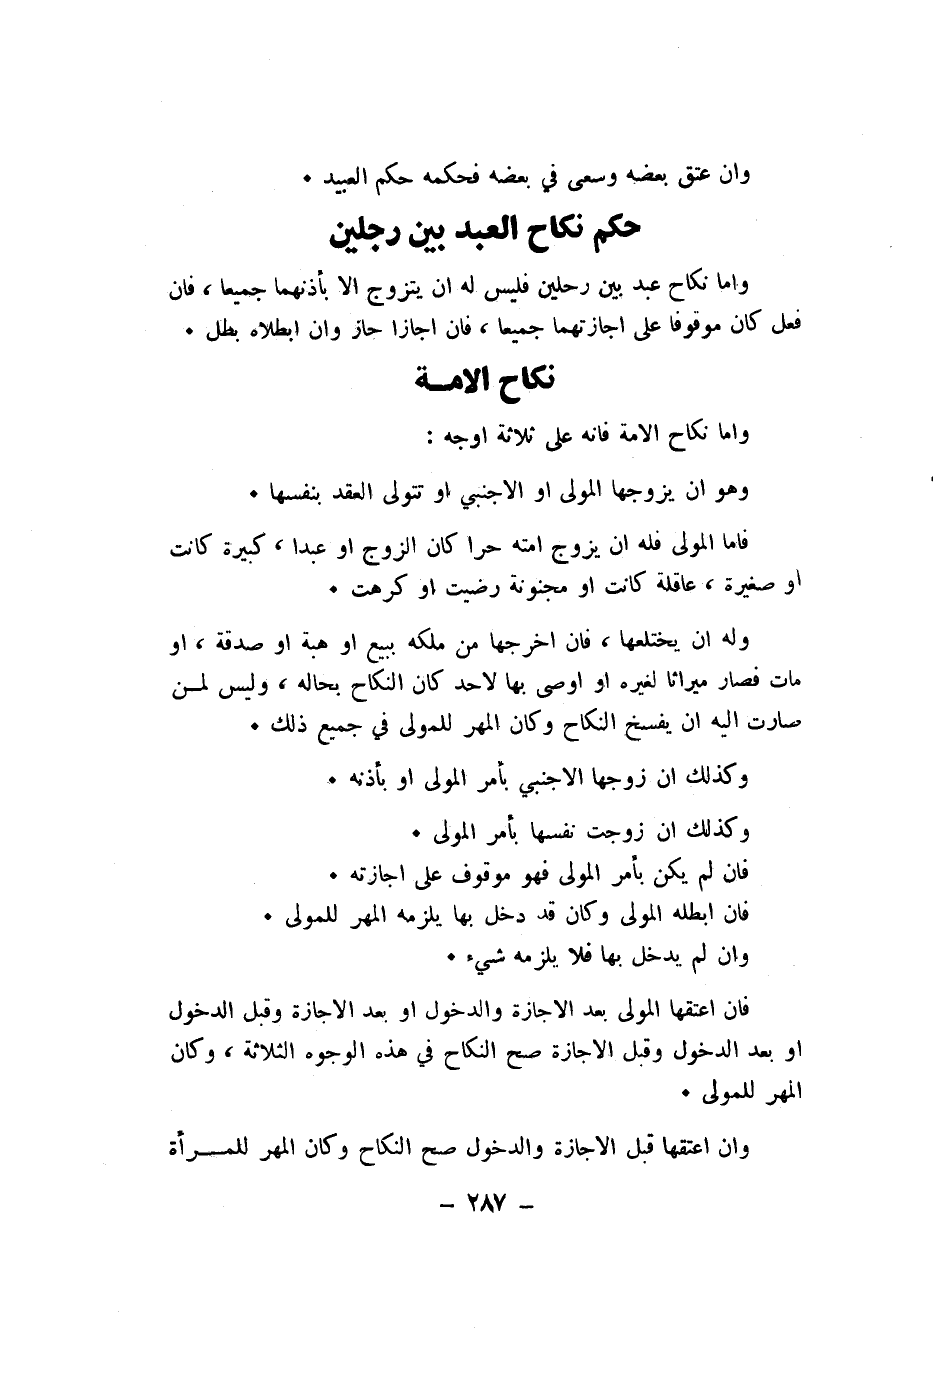 وان عتق بعضه وسعى في بعضه فحكمه حكم العبيد .
حكم نكاح العبد بين رجلين
واما نكاح عبد بين رحلين فليس له ان يتزوج الا بأذنهما جميعا ، فان
فعل كان موقوفا على اجازتهما جميعا ، فان اجازا حاز وان ابطلاه بطل .
نكاح الامــة
واما نكاح الامة فانه على ثلاثة اوجه :
وهو ان يزوجها المولى او الاجنبي او تتولى العقد بنفسها .
فاما المولى فله ان يزوج امته حرا كان الزوج او عبدا ، كبيرة كانت
او صغيرة ، عاقلة كانت او مجنونة رضيت او كرهت .
وله ان يختلعها ، فان اخرجها من ملكه ببيع او هبة او صدقة ، او
مات فصار ميراثا لغيره او اوصى بها لاحد كان النكاح بحاله ، وليس لمــن
صارت اليه ان يفسخ النكاح وكان المهر للمولى في جميع ذلك .
وكذلك ان زوجها الاجنبي بأمر المولى او بأذنه .
وكذلك ان زوجت نفسها بأمر المولى .
فان لم يكن بأمر المولى فهو موقوف على اجازته .
فان ابطله المولى وكان قد دخل بها يلزمه المهر للمولى .
وان لم يدخل بها فلا يلزمه شيء .
فان اعتقها المولى بعد الاجازة والدخول او بعد الاجازة وقبل الدخول
او بعد الدخول وقبل الاجازة صح النكاح في هذه الوجوه الثلاثة ، وكان
المهر للمولى .
وان اعتقها قبل الاجازة والدخول صح النكاح وكان المهر للمــرأة
– ٢٨٧ –